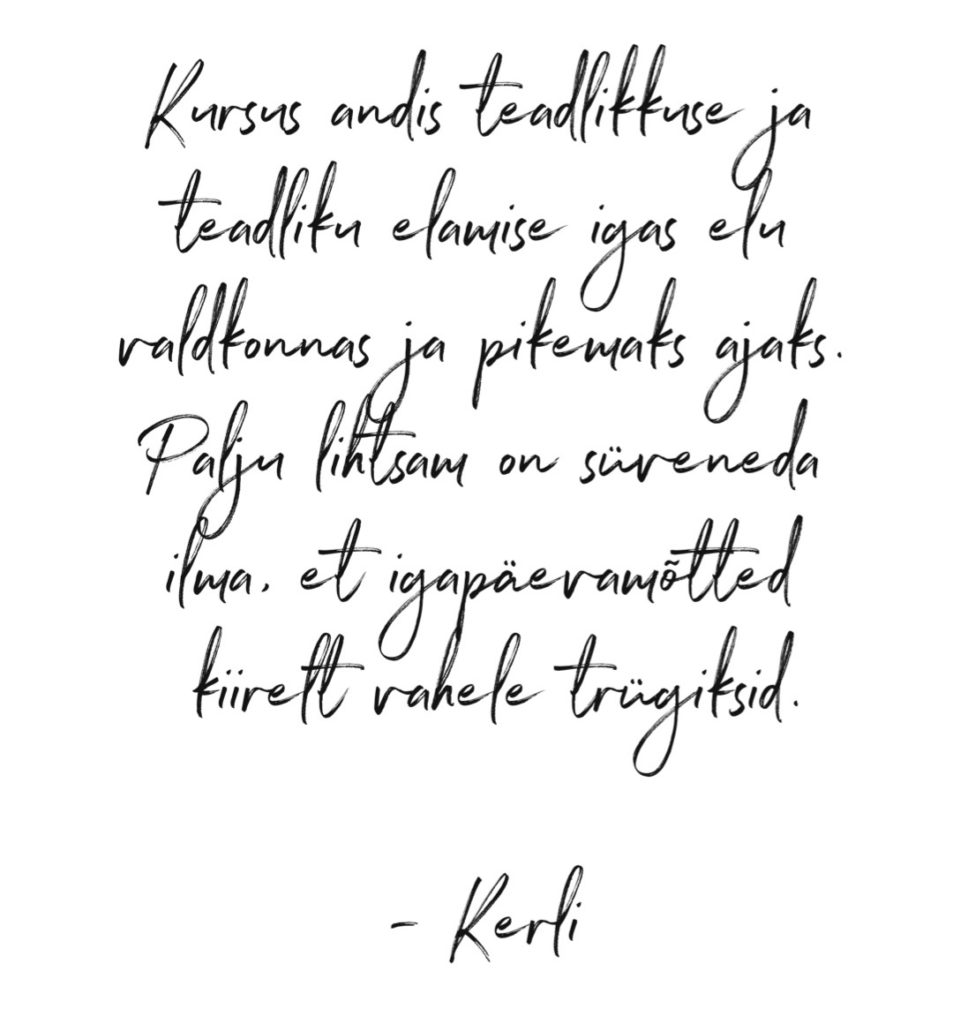 Kursus andis teadlikkuse ja
teadliku elamise igas elu
valdkonnas ja pikemaks ajaks.
Palju lihtsam on süveneda
ilma, et igapäevamõtted
kiirelt vahele trügiksid.
- Kerli